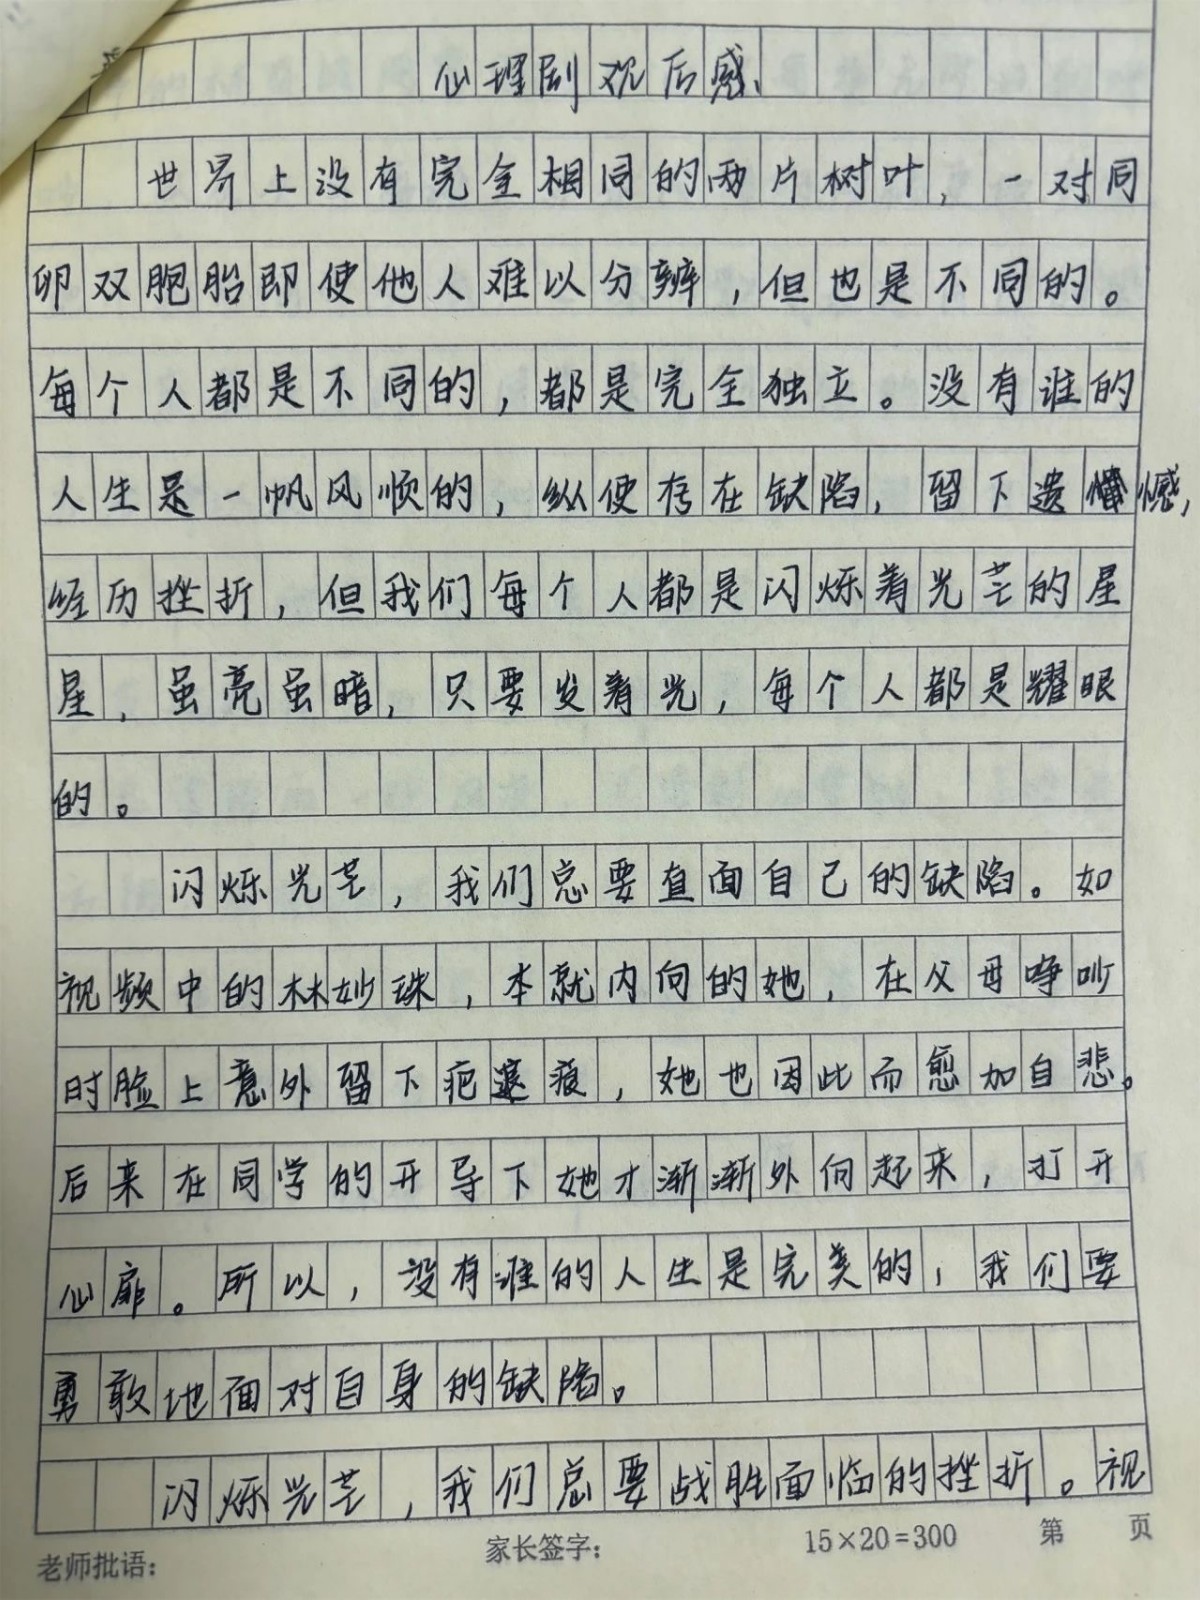 心理剧观后感
世界上没有完全相同的两片树叶，一对同
卵双胞胎即使他人难以分辨，但也是不同的。
每个人都是不同的，都是完全独立。没有谁的
人生是一帆风顺的，纵使存在缺陷，留下遗憾，
经历挫折，但我们每个人都是闪烁着光芒的星
星，虽亮虽暗，只要发着光，每个人都是耀眼
的。
闪烁光芒，我们总要直面自己的缺陷。如
视频中的林妙珠，本就内向的她，在父母争吵
时脸上意外留下疤痕，她也因此而愈加自悲。
后来在同学的开导下她才渐渐外向起来，打开
心扉。所以，没有谁的人生是完美的，我们要
勇敢地面对自身的缺陷。
闪烁光芒，我们总要战胜面临的挫折。视
老师批语： 家长签字： 15×20=300 第 页